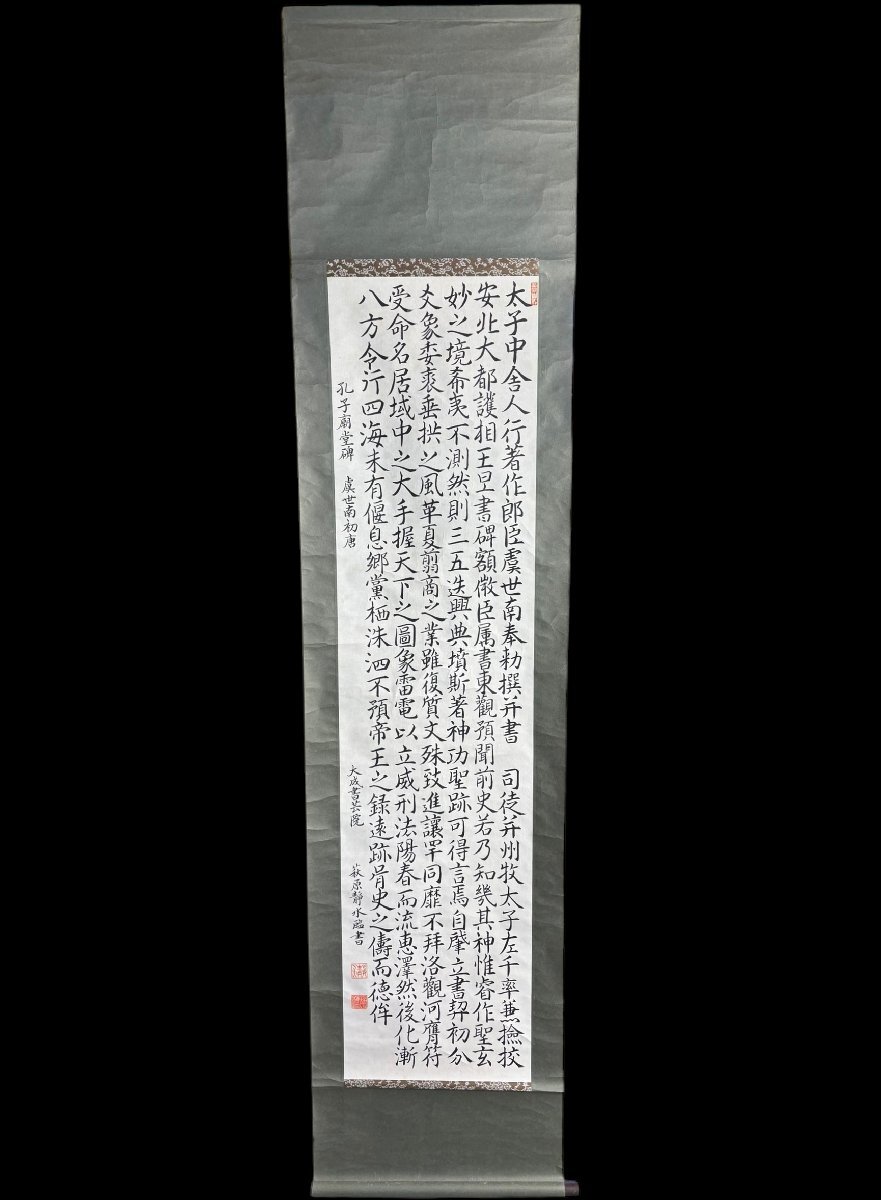 太子中舎人行著作郎臣虞世南奉勅撰并書　司徒并州牧太子左千率兼撿挍
安北大都護相王旦書碑額微臣属書東觀預聞前史若乃知幾其神惟睿作聖玄
妙之境希夷不測然則三五迭興典墳斯著神功聖跡可得言焉自肇立書契初分
爻象委裘垂拱之風革夏翦商之業雖復質文殊致進讓罕同靡不拜洛觀河膺符
受命名居域中之大手握天下之圖象雷電以立威刑法陽春而流恵澤然後化漸
八方令行四海未有偃息郷黨栖洙泗不預帝王之録遠跡胥史之儔而徳侔
孔子廟堂碑　虞世南初唐
大成書芸院　萩原靜水臨書